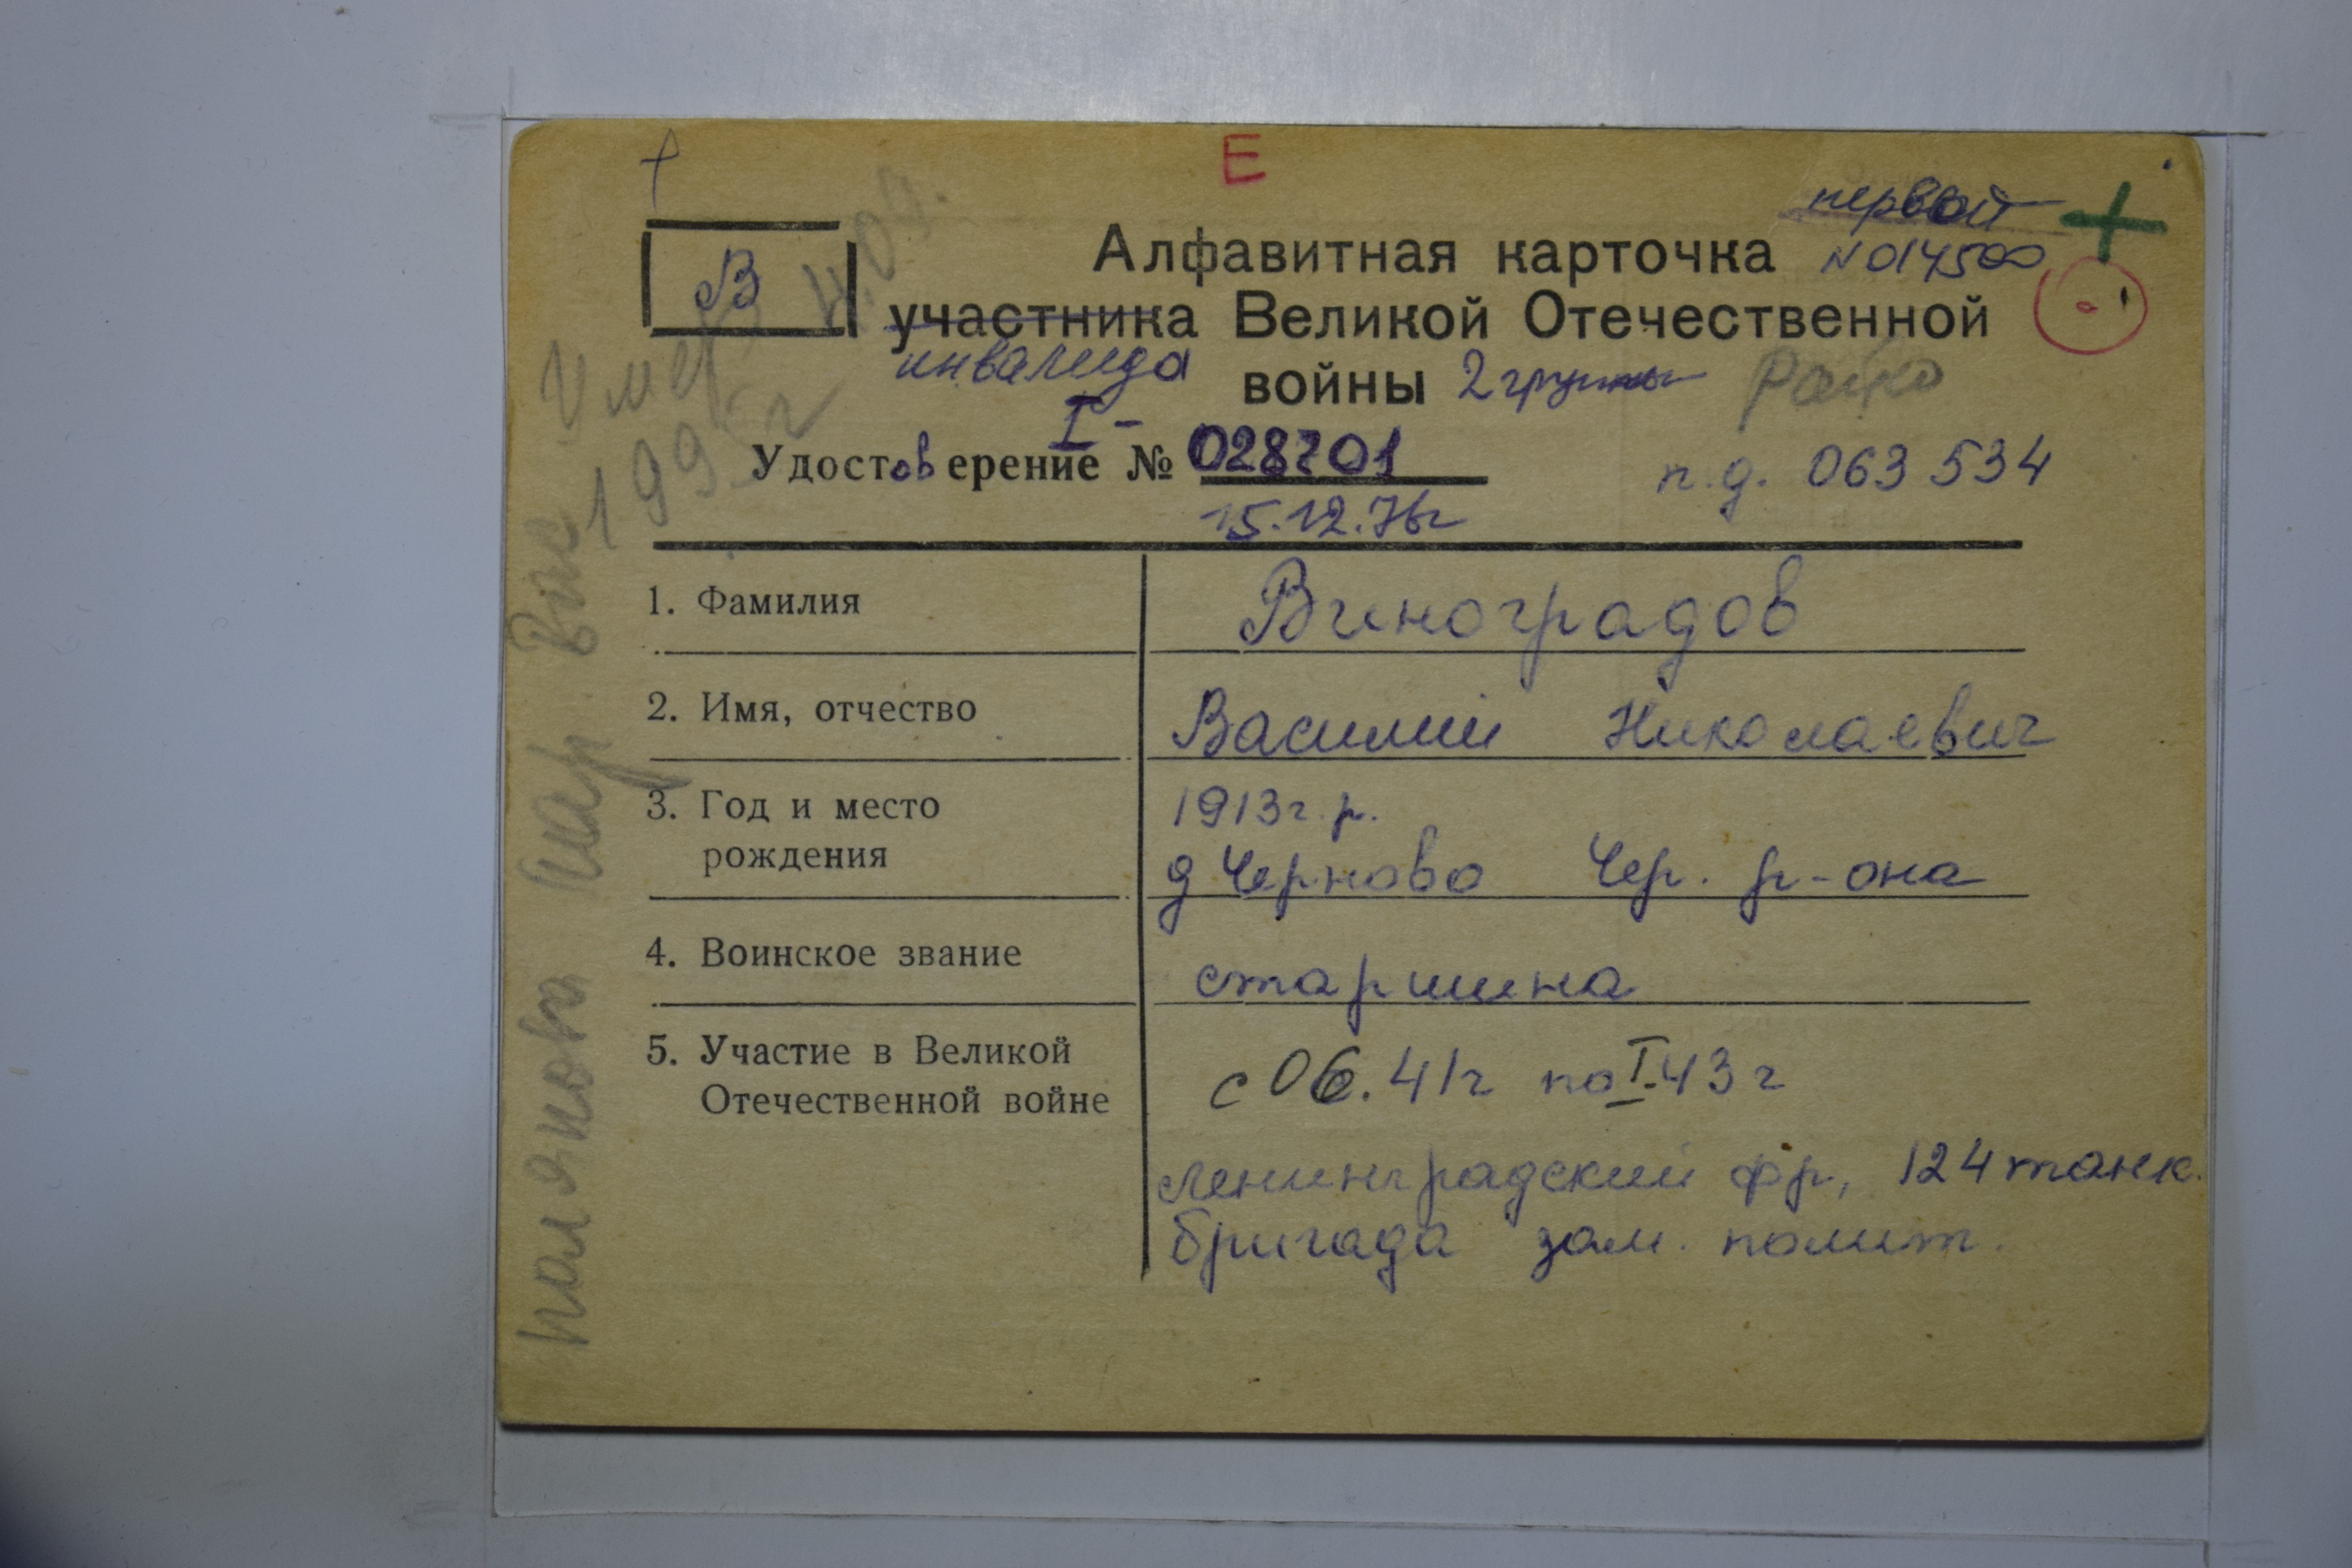 Е
первой
В
Алфавитная карточка N 014500
участника Великой Отечественной
инвалида
войны 2 группы
I -
Удостоверение № 028701
п.д. 063534
15.12.76г
Умер 4.09.
199
1. Фамилия Виноградов
2. Имя, отчество Василий Николаевич
3. Год и место 1913 г.р.
рождения д Черново Чер. р-она
4. Воинское звание старшина
5. Участие в Великой
Отечественной войне с 06.41г по I-43г
Ленинградский фр., 124 танк.
бригада зам. полит.
Мар. Вас